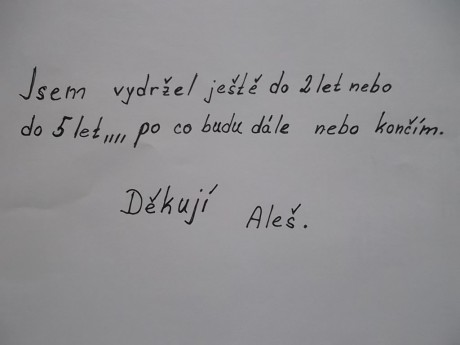 Jsem vydržel ještě do 2 let nebo
do 5 let,,,, po co budu dále nebo končím.
Děkují
Aleš.